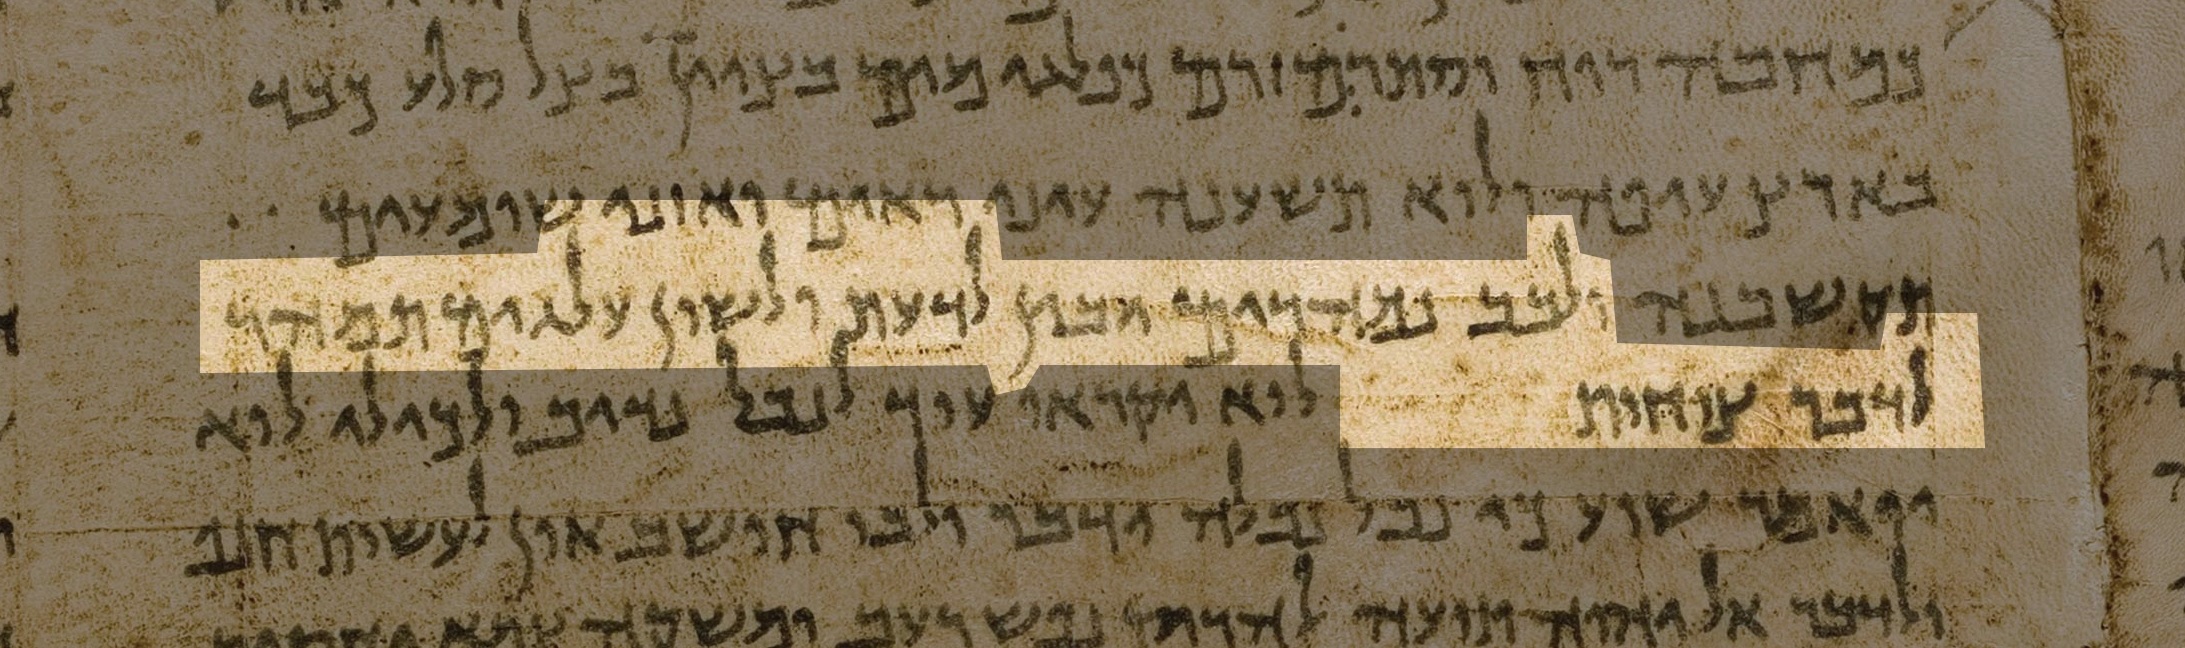 כמחבה רוח וסתרם זרם כפלגי מים בציון כצל סלע כבד
בארץ עיפה ולוא תשענה עיני ראים ואוזני שומעים
תקשבנה ולבב נמהרים יבין לדעת ולשון עלגים תמהר
לדבר צחות לוא יקראו עוד לנבל נדיב ולכילי לוא
יואמר שוע כי נבל נבלה ידבר ולבו חושב און לעשות חנף
ולדבר אל יהוה תועה להריק נפש רעב ומשקה צמא